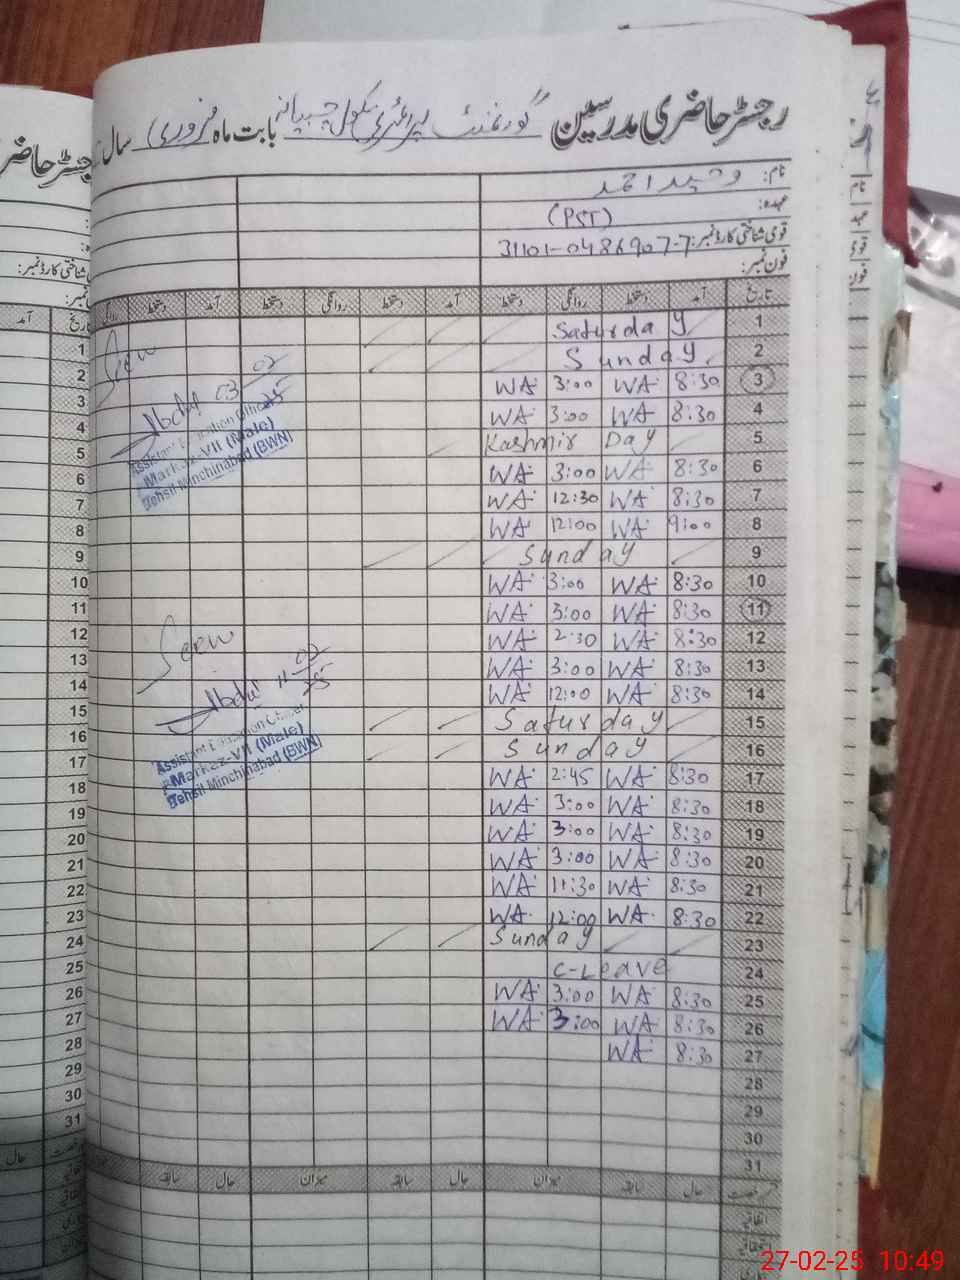 رجسٹر حاضری مدرسین گورنمنٹ پرائمری سکول بابت ماہ فروری سال
نام: وحید احمد
عہدہ: (PST)
قومی شناختی کارڈ نمبر: 31101-0486907-7
فون نمبر:
تاریخ آمد دستخط روانگی دستخط آمد دستخط روانگی دستخط آمد دستخط روانگی
1 Saturday
2 Sunday
3 8:30 WA 3:00 WA
4 8:30 WA 3:00 WA
5 Kashmir Day
6 8:30 WA 3:00 WA
7 8:30 WA 12:30 WA
8 9:00 WA 12:00 WA
9 Sunday
10 8:30 WA 3:00 WA
11 8:30 WA 3:00 WA
12 8:30 WA 2:30 WA
13 8:30 WA 3:00 WA
14 8:30 WA 12:00 WA
15 Saturday
16 Sunday
17 8:30 WA 2:45 WA
18 8:30 WA 3:00 WA
19 8:30 WA 3:00 WA
20 8:30 WA 3:00 WA
21 8:30 WA 11:30 WA
22 8:30 WA 12:00 WA
23 Sunday
24 C-Leave
25 8:30 WA 3:00 WA
26 8:30 WA 3:00 WA
27 8:30 WA
28
29
30
31
حال سابقہ میزان حال سابقہ میزان حال سابقہ
اتفاقیہ
Seen
Abdul 03-02-25
Assistant Education Officer
Markaz-VII (Male)
Tehsil Minchinabad (BWN)
Seen
Abdul 11-02-25
Assistant Education Officer
Markaz-VII (Male)
Tehsil Minchinabad (BWN)
رجسٹر حاضر
شناختی کارڈ نمبر:
تاریخ آمد
1
2
3
4
5
6
7
8
9
10
11
12
13
14
15
16
17
18
19
20
21
22
23
24
25
26
27
28
29
30
31
حال
27-02-25 10:49